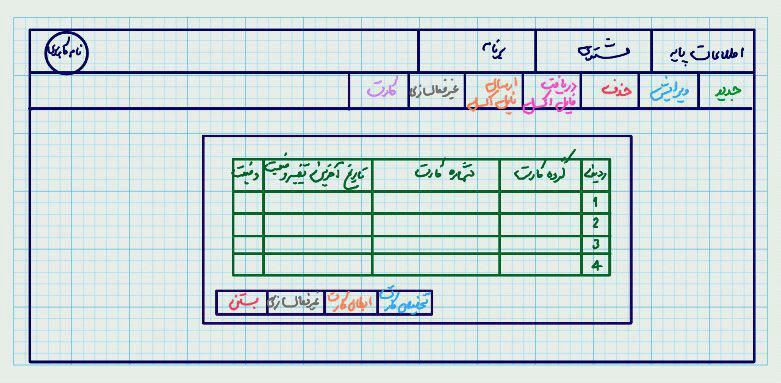 اطلاعات پایه
مشتری
برنامه
نام کاربری
جدید
ویرایش
حذف
دریافت فایل اکسل
ارسال فایل اکسل
غیرفعالسازی
کارت
ردیف
گروه کارت
شماره کارت
تاریخ آخرین تغییر وضعیت
وضعیت
1
2
3
4
تخصیص کارت
ابطال کارت
غیرفعالسازی
بستن